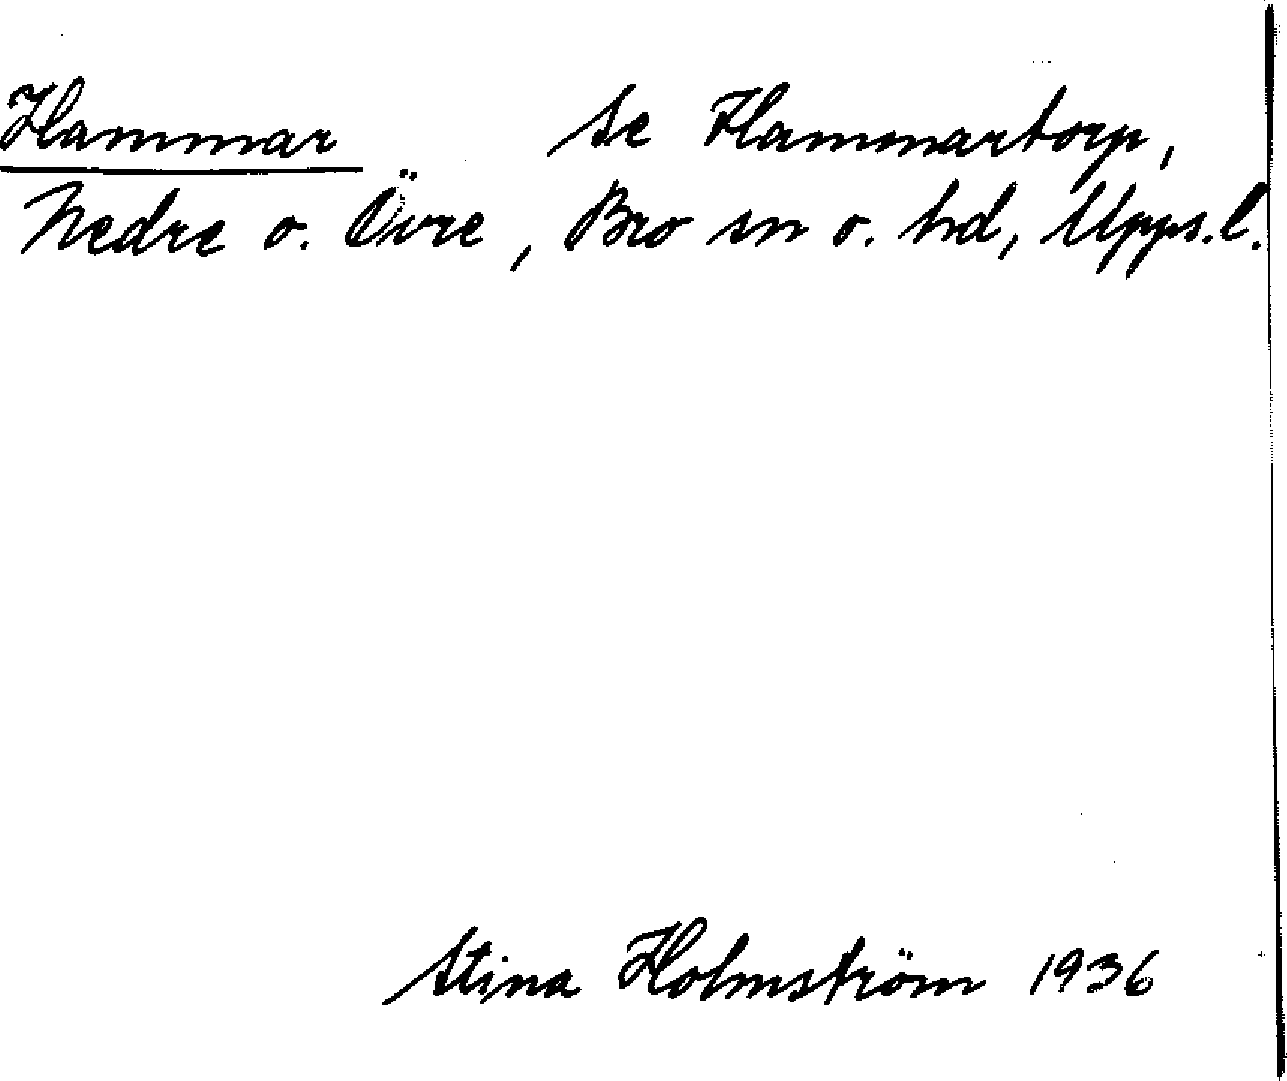 Hammar se Hammartorp,
Nedre o. Övre, Bro sn o. hd, Upps.l.
Stina Holmström 1936